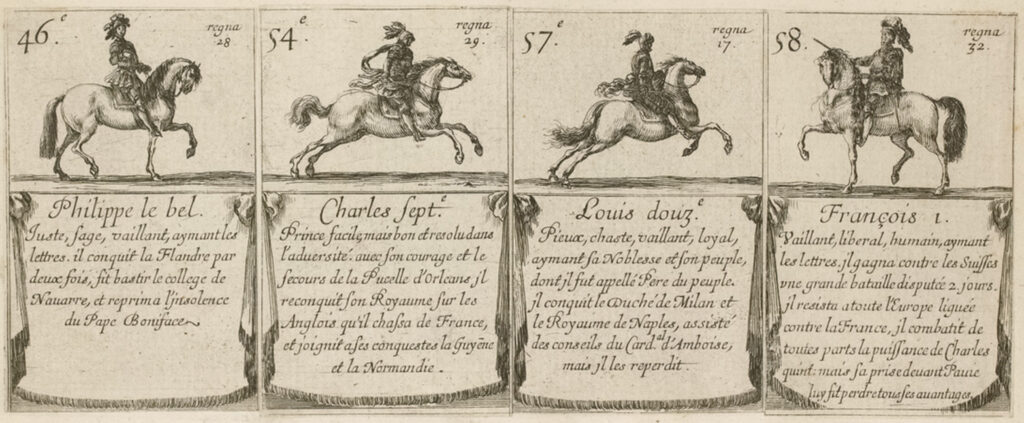 46.e
regna
28
Philippe le bel.
Iuste, sage, vaillant, aymant les
lettres. il conquit la Flandre par
deux fois, fit bastir le college de
Navarre, et reprima l'insolence
du Pape Boniface
54.e
regna
29.
Charles sept.e
Prince facile, mais bon et resolu dans
l'adversité: avec son courage et le
secours de la Pucelle d'Orleans jl
reconquit son Royaume sur les
Anglois qu'il chassa de France,
et joignit a ses conquestes la Guyēne
et la Normandie.
57.e
regna
17.
Louis douz.e
Pieux, chaste, vaillant, loyal,
aymant sa Noblesse et son peuple,
dont jl fut appellé Pere du peuple.
jl conquit le Duché de Milan et
le Royaume de Naples, assisté
des conseils du Card.al d'Amboise,
mais jl les reperdit.
58.
regna
32.
François 1.
Vaillant, liberal, humain, aymant
les lettres. jl gagna contre les Suisses
vne grande bataille disputée 2. jours.
jl resista a toute l'Europe liguée
contre la France, jl combatit de
toutes parts la puissance de Charles
quint: mais sa prise devant Pavie
luy fit perdre tous ses avantages.